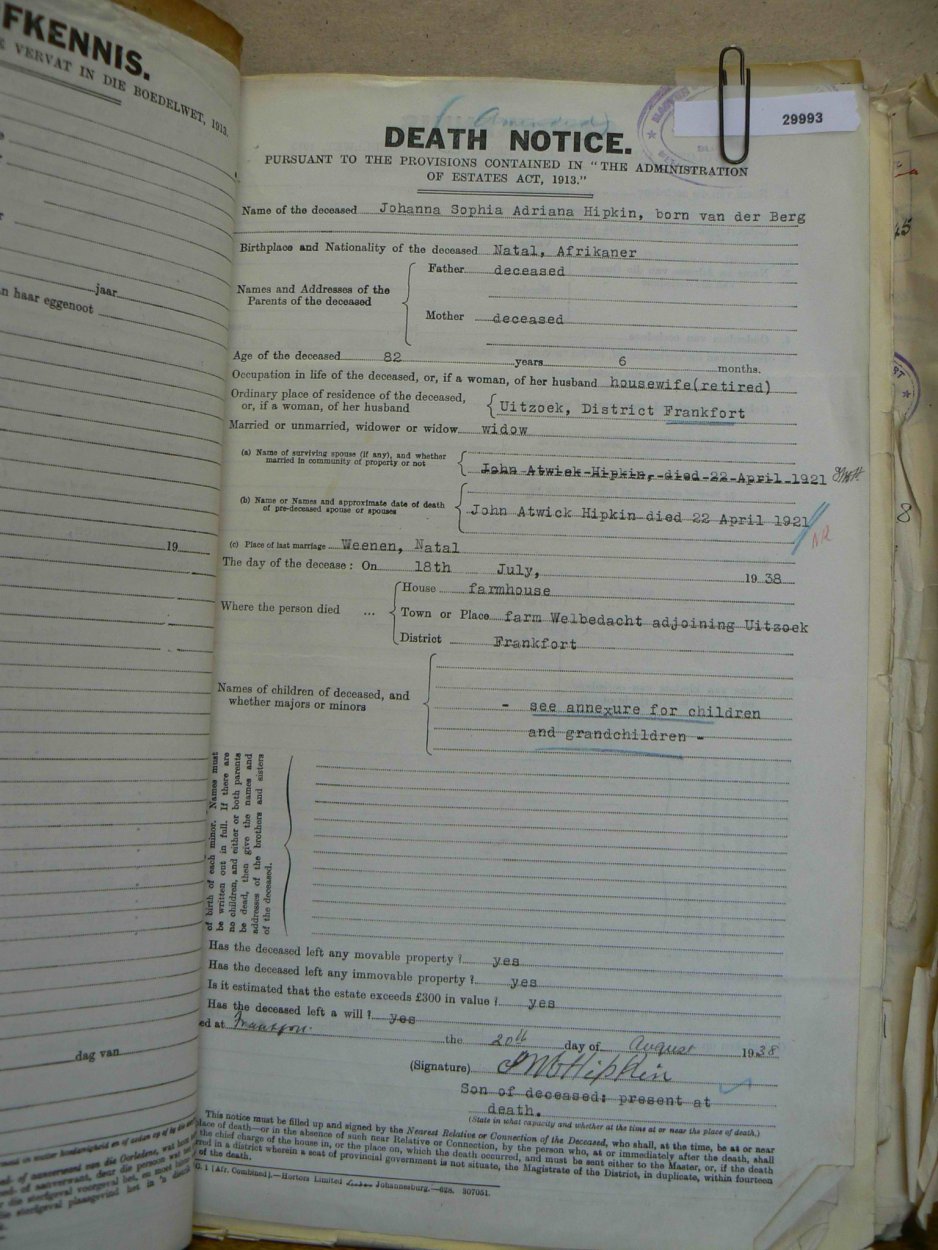 FKENNIS.
VERVAT IN DIE BOEDELWET, 1913.
jaar
haar eggenoot
19
dag van
(Amended)
29993
DEATH NOTICE.
PURSUANT TO THE PROVISIONS CONTAINED IN "THE ADMINISTRATION
OF ESTATES ACT, 1913."
Name of the deceased Johanna Sophia Adriana Hipkin, born van der Berg
Birthplace and Nationality of the deceased Natal, Afrikaner
Names and Addresses of the Parents of the deceased
Father deceased
Mother deceased
Age of the deceased 82 years 6 months.
Occupation in life of the deceased, or, if a woman, of her husband housewife(retired)
Ordinary place of residence of the deceased,
or, if a woman, of her husband Uitzoek, District Frankfort
Married or unmarried, widower or widow widow
(a) Name of surviving spouse (if any), and whether
married in community of property or not John Atwick Hipkin, died 22 April 1921
(b) Name or Names and approximate date of death
of pre-deceased spouse or spouses John Atwick Hipkin died 22 April 1921
(c) Place of last marriage Weenen, Natal
The day of the decease: On 18th July, 1938
Where the person died ...
House farmhouse
Town or Place farm Welbedacht adjoining Uitzoek
District Frankfort
Names of children of deceased, and
whether majors or minors
- see annexure for children
and grandchildren -
of birth of each minor. Names must
be written out in full. If there are
no children, and either or both parents
be dead, then give the names and
addresses of the brothers and sisters
of the deceased.
Has the deceased left any movable property? yes
Has the deceased left any immovable property? yes
Is it estimated that the estate exceeds £300 in value? yes
Has the deceased left a will? yes
ed at the 20th day of August 1938
(Signature) Hipkin
Son of deceased; present at
death.
(State in what capacity and whether at the time at or near the place of death.)
This notice must be filled up and signed by the Nearest Relative or Connection of the Deceased, who shall, at the time, be at or near
place of death—or in the absence of such near Relative or Connection, by the person who, at or immediately after the death, shall
the chief charge of the house in, or the place on, which the death occurred, and must be sent either to the Master, or, if the death
red in a district wherein a seat of provincial government is not situate, the Magistrate of the District, in duplicate, within fourteen
of the death.
G. 1 [Afr. Combined].—Hortors Limited Johannesburg.—628. 307051.
45
8